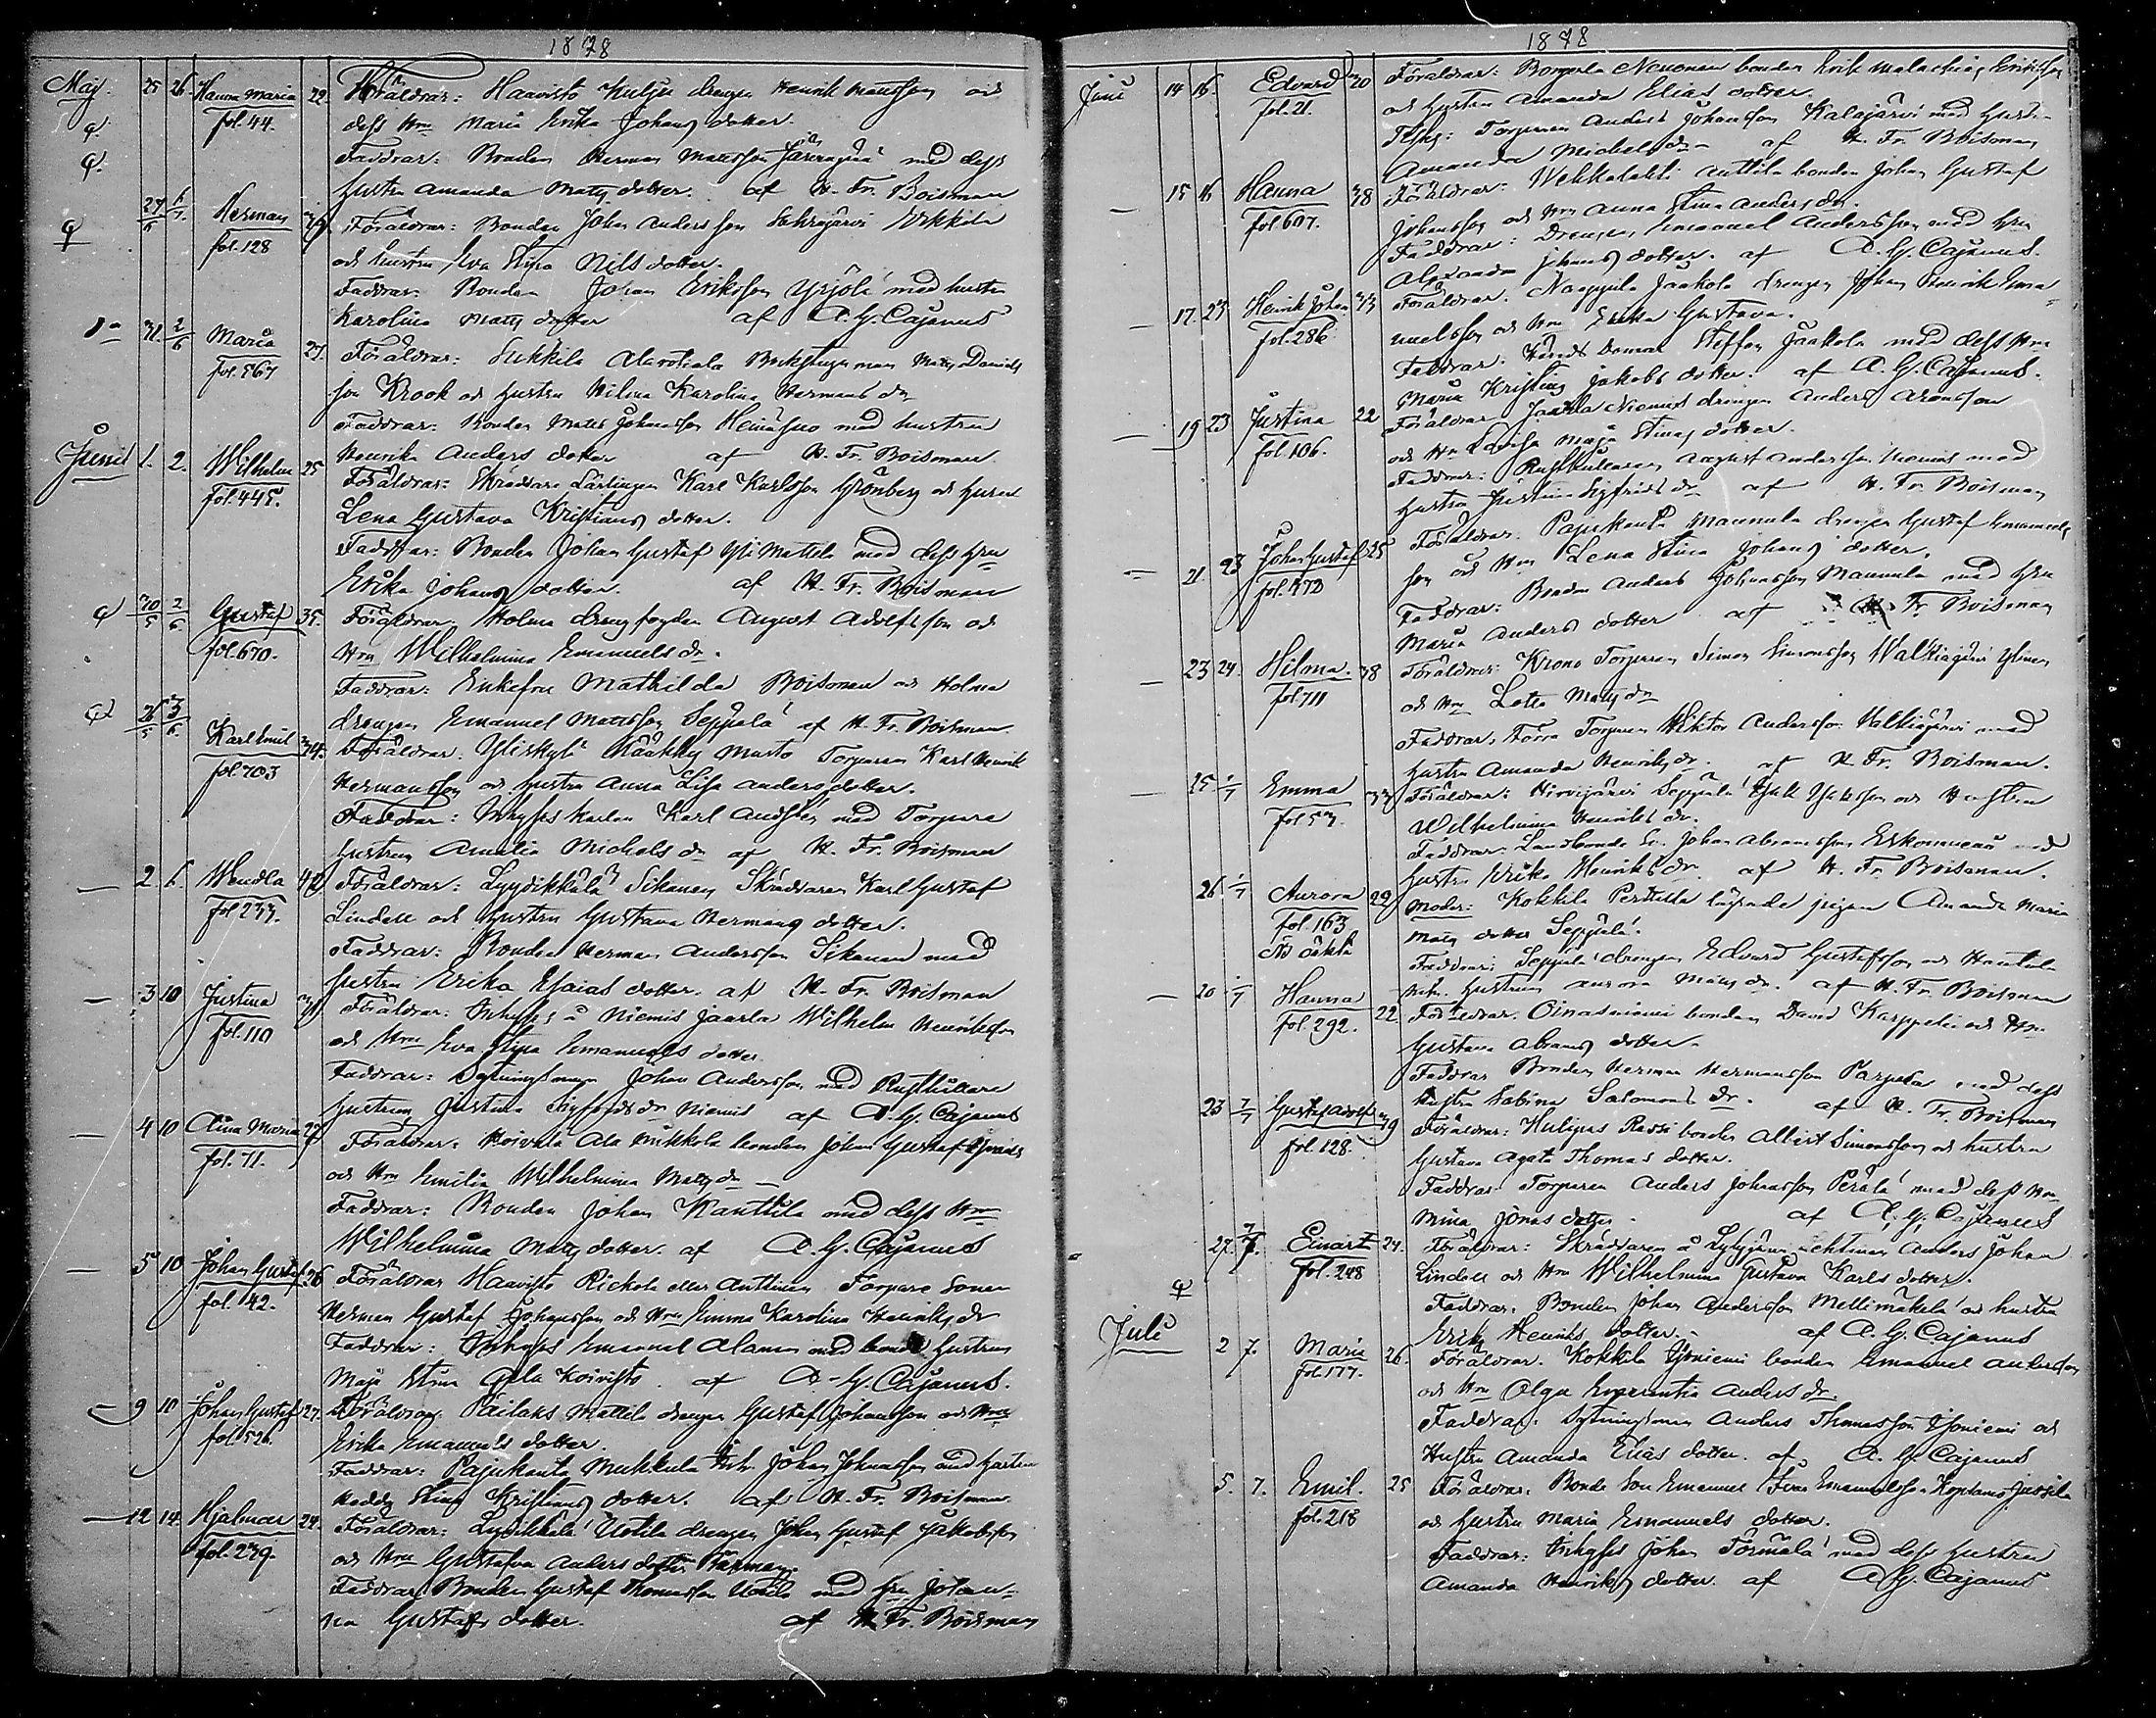 1878
Maj. 25 26. Hanna Maria 22. Föräldrar: Haavisto Kulju drengen Henrik Mattsson och
fol. 44. dess Hru Maria Erika Johans dotter.
Faddrar: Bonden Herman Mattsson med dess
hustru Amanda Matts dotter. af H. Fr. Boisman
27/5 Herman Föräldrar: Bonden Johan Andersson Erkkilä
fol. 128 och hustru Eva Stina Nils dotter.
Faddrar: Bonden Johan Eriksson Yrjölä med hustru
Karolina Matts dotter af A. G. Cajanus
31. 2/6 Maria 27. Föräldrar: Sukkila Matts Daniels
fol. 567 son Krook och hustru Hilma Karolina Hermans dr
Faddrar: Bonden Matts Johansson Heinäsuo med hustru
Henrika Anders dotter af H. Fr. Boisman.
Junii 1. 2. Wilhelm 25 Föräldrar: Skräddare Lärlingen Karl Karlsson Grönberg och hustru
fol. 445. Lena Gustava Kristians dotter.
Faddrar: Bonden Johan Gustaf Yli Mattila med dess Hru
Erika Johans dotter. af H. Fr. Boisman
30/5 2/6 Gustaf 35. Föräldrar: Holma drengfogden August Adolfsson och
fol. 670. Hru Wilhelmina Emanuels dr.
Faddrar: Enkefru Mathilda Boisman och Holma
drengen Emanuel Mattsson Seppälä af H. Fr. Boisman.
26/5 3/6 Karl Emil 34. Föräldrar: Yliskylä Torparen Karl Henrik
fol. 703 Hermansson och hustru Anna Lisa Anders dotter.
Faddrar: Inhyses Karlen Karl med Torpare
hustrun Amalia Michels dr af H. Fr. Boisman
2 6. Wendla 42 Föräldrar: Lyydikkälä Sikanen Skräddaren Karl Gustaf
fol 233. Lindell och hustru Gustava Hermans dotter.
Faddrar: Bonden Herman Andersson Sikanen med
hustru Erika Esaias dotter. af H. Fr. Boisman
3 10 Justina Föräldrar: Inhyses å Niemis Jaarla Wilhelm Henriksson
fol. 110 och Hru Eva Stina Emanuels dotter
Faddrar: Sytningsman Johan Andersson med Rusthållare
hustrun Justina Sigfrids dr Niemis af A. G. Cajanus
4 10 Aina Maria 27 Föräldrar: Koivula Ala Mikkola bonden Johan Gustaf
fol. 71. och Hru Emilia Wilhelmina Matts dr
Faddrar: Bonden Johan Kanttila med dess Hru
Wilhelmina Matts dotter. af A. G. Cajanus
5 10 Johan Gustaf 26 Föräldrar Haavisto Rickola eller Anttinen Torpare Sonen
fol. 42. Herman Gustaf Johansson och Hru Emma Karolina Henriks dr
Faddrar: Inhyses Emanuel Alanen med bonde hustrun
Maja Stina Koivisto af A. G. Cajanus.
9 10 Johan Gustaf 27. Föräldrar: Mattila drengen Gustaf Johansson och Hru
fol. 526. Erika Emanuels dotter.
Faddrar: Pajukanta Mukkula Inh. Johan Johansson med hustru
Hedda Stina Kristians dotter. af H. Fr. Boisman.
12 14 Hjalmar 24. Föräldrar: Lyydikkälä Uotila drengen Johan Gustaf Jakobsson
fol. 239. och Hru Gustafva Anders dotter
Faddrar: Bonden Gustaf Thomasson Uotila med Hru Johan-
na Gustafs dotter. af H. Fr. Boisman
1878
Junii 14 16. Edvard 30 Föräldrar: Bonden Erik Malachias Eriksson
fol. 21. och hustru Amanda Elias dotter.
Torparen Anders Johansson Kalajärvi med hustru
Amanda Michels dr af H. Fr. Boisman
15 16 Hanna 38 Föräldrar: Wehkalahti Anttila bonden Johan Gustaf
fol. 607. Johansson och Hru Anna Stina Anders dr.
Faddrar: Drengen Emanuel Andersson med Hru
Alexandra Johans dotter. af A. G. Cajanus.
17. 23 Henrik Johan 33 Föräldrar. Jaakola drengen Johan Henrik Ema-
fol. 286 nuelsson och Hru Erika Gustava.
Faddrar: Steffan Jaakola med dess Hru
Maria Kristina Jakobs dotter. af A. G. Cajanus.
19 23 Justina 22 Föräldrar: Jaarla Niemis drengen Anders Aronsson
fol. 106. och Hru Lovisa Maja Stinas dotter.
Faddrar: Rusthållaren August Andersson Niemis med
hustru Justina Sigfrids dr af H. Fr. Boisman
21. 23 Johan Gustaf 25 Föräldrar. Pajukanta Maunula drengen Gustaf Emanuels
fol. 473 son och Hru Lena Stina Johans dotter.
Faddrar: Bonden Anders Johansson Maunula med Hru
Maria Anders dotter af H. Fr. Boisman
23 24. Hilma. 38 Föräldrar: Krono Torparen Simon Simonsson Walkiajärvi
fol 711 och Hru Lotta Matts dr
Faddrar: Torparen Wiktor Andersson Walkiajärvi med
hustru Amanda Henriks dr. af H. Fr. Boisman.
25 1/7 Emma 33 Föräldrar: Hirvijärvi Seppälä och Hustru
Wilhelmina Henriks dr.
Faddrar: Landbonde Johan Abramsson Eskoinniemi med
hustru Erika Henriks dr. af H. Fr. Boisman.
26. 1/7 Aurora 22 Moder: Kokkila Perttula pigan Amanda Maria
fol. 163 Matts dotter Seppälä.
Oäkta Faddrar: Seppälä drengen Edvard Gustafsson och
hustrun Aurora Matts dr. af H. Fr. Boisman
20 1/7 Hanna 22. Föräldrar. Oinasniemi bonden David Karppila och Hru
fol. 292. Gustava Abrams dotter.
Faddrar Bonden Herman Hermansson med dess
hustru Sabina Salomons dr. af H. Fr. Boisman
23 7/7 Gustaf Adolf 39 Föräldrar: Huligas Rassi bonden Albert Simonsson och hustru
fol. 128. Gustava Agata Thomas dotter.
Faddrar Torparen Anders Johansson Perälä med dess Hru
Mina Jonas dotter. af A. G. Cajanus
27. 7/7. Einart 24. Föräldrar: Skräddaren å Anders Johan
fol. 248 Lindell och Hru Wilhelmina Gustava Karls dotter.
Faddrar. Bonden Johan Andersson Mellimäkelä och hustru
Erika Henriks dotter. af A. G. Cajanus
Juli 2 7. Maria 26. Föräldrar. Kokkila Isoniemi bonden Emanuel Andersson
fol. 177. och Hru Olga Anders dr.
Faddrar. Sytningsman Anders Thomasson Isoniemi och
Hustru Amanda Elias dotter. af A. G. Cajanus
5. 7. Emil. 25 Föräldrar. Bonde Son Emanuel Iivar Emanuelsson Jussila
fol. 218 och hustru Maria Emanuels dotter.
Faddrar: Inhyses Johan Törmälä med dess hustru
Amanda Henriks dotter. af A. G. Cajanus